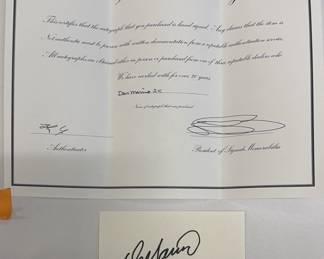 This certifies that the autograph that you purchased is hand signed. Any claims that the item is
Not authentic must be proven with written documentation from a reputable authentication service.
All autographs are obtained either in person or purchased from one of three reputable dealers who
We have worked with for over 20 years.
Dan Marino 3x
Name of autograph that was purchased
Authenticator
President of Legends Memorabilia